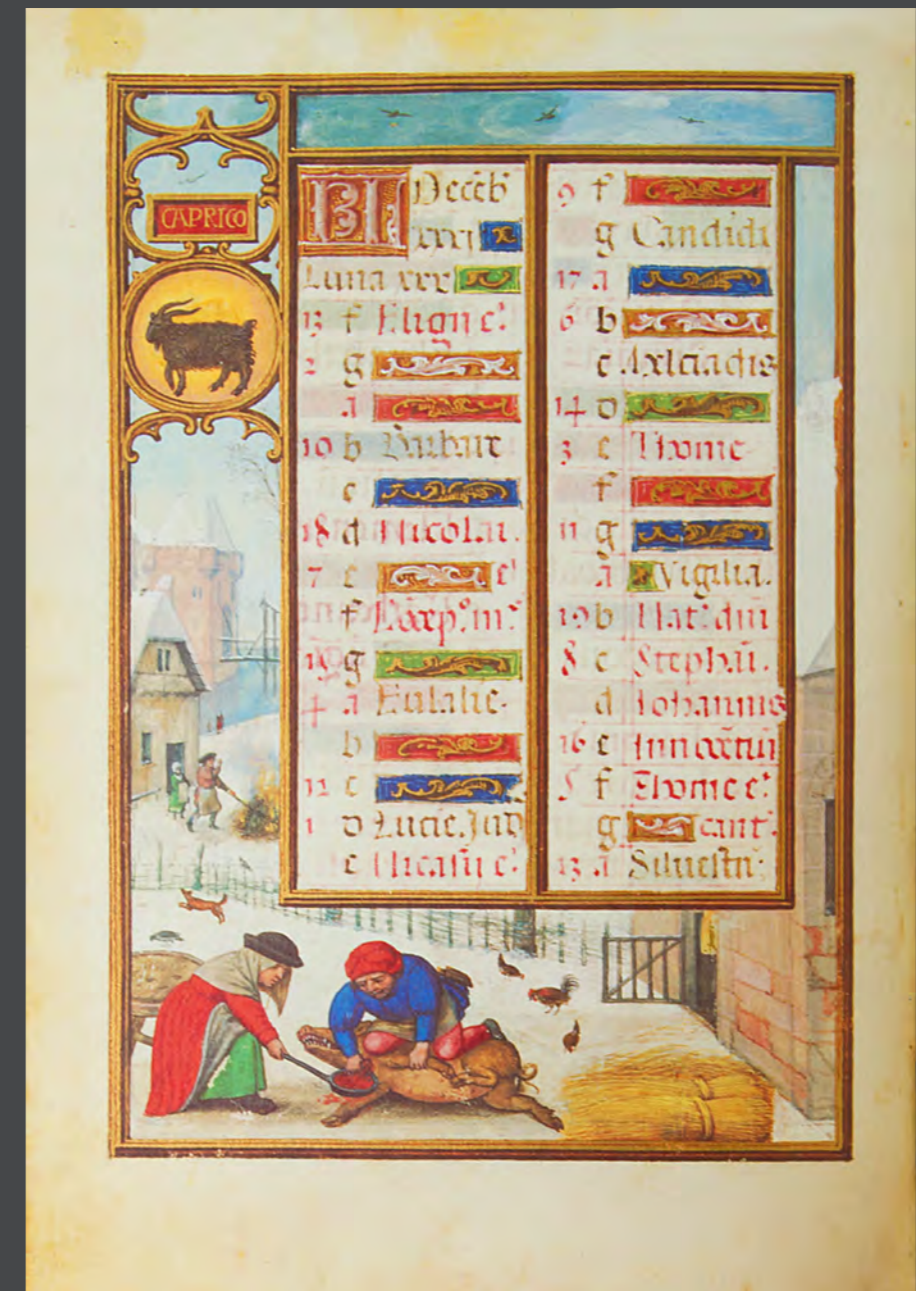 CAPRICO
KL Deceb
xxxi
Luna xxx
13 f Eligii e.
2 g
A
10 b Barbare
c
18 d Nicolai.
7 e e.
f Cõcep. m.
g
4 A Eulalie.
b
12 c
1 d Lucie. Jud
e Nicasii e.
9 f
g Candidi
17 A
6 b
c
14 d
3 e Thome
f
11 g
A Vigilia.
19 b Nat. dñi
8 c Stephañ.
d Johannis
16 e Innocẽtũ
5 f Thome e.
g cant.
13 A Silvestri.